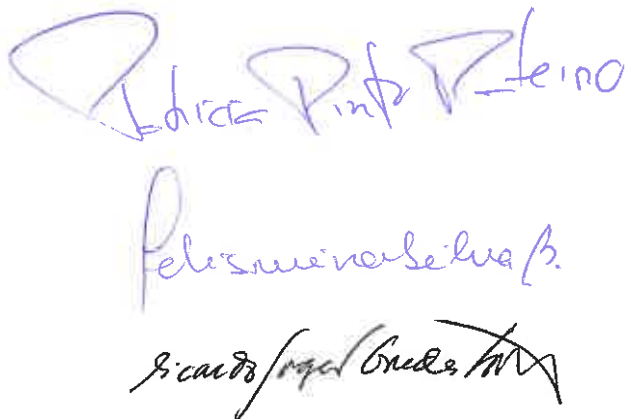 Patrícia Pinto
Felismina Silva B.
Ricardo Jorge Guedes